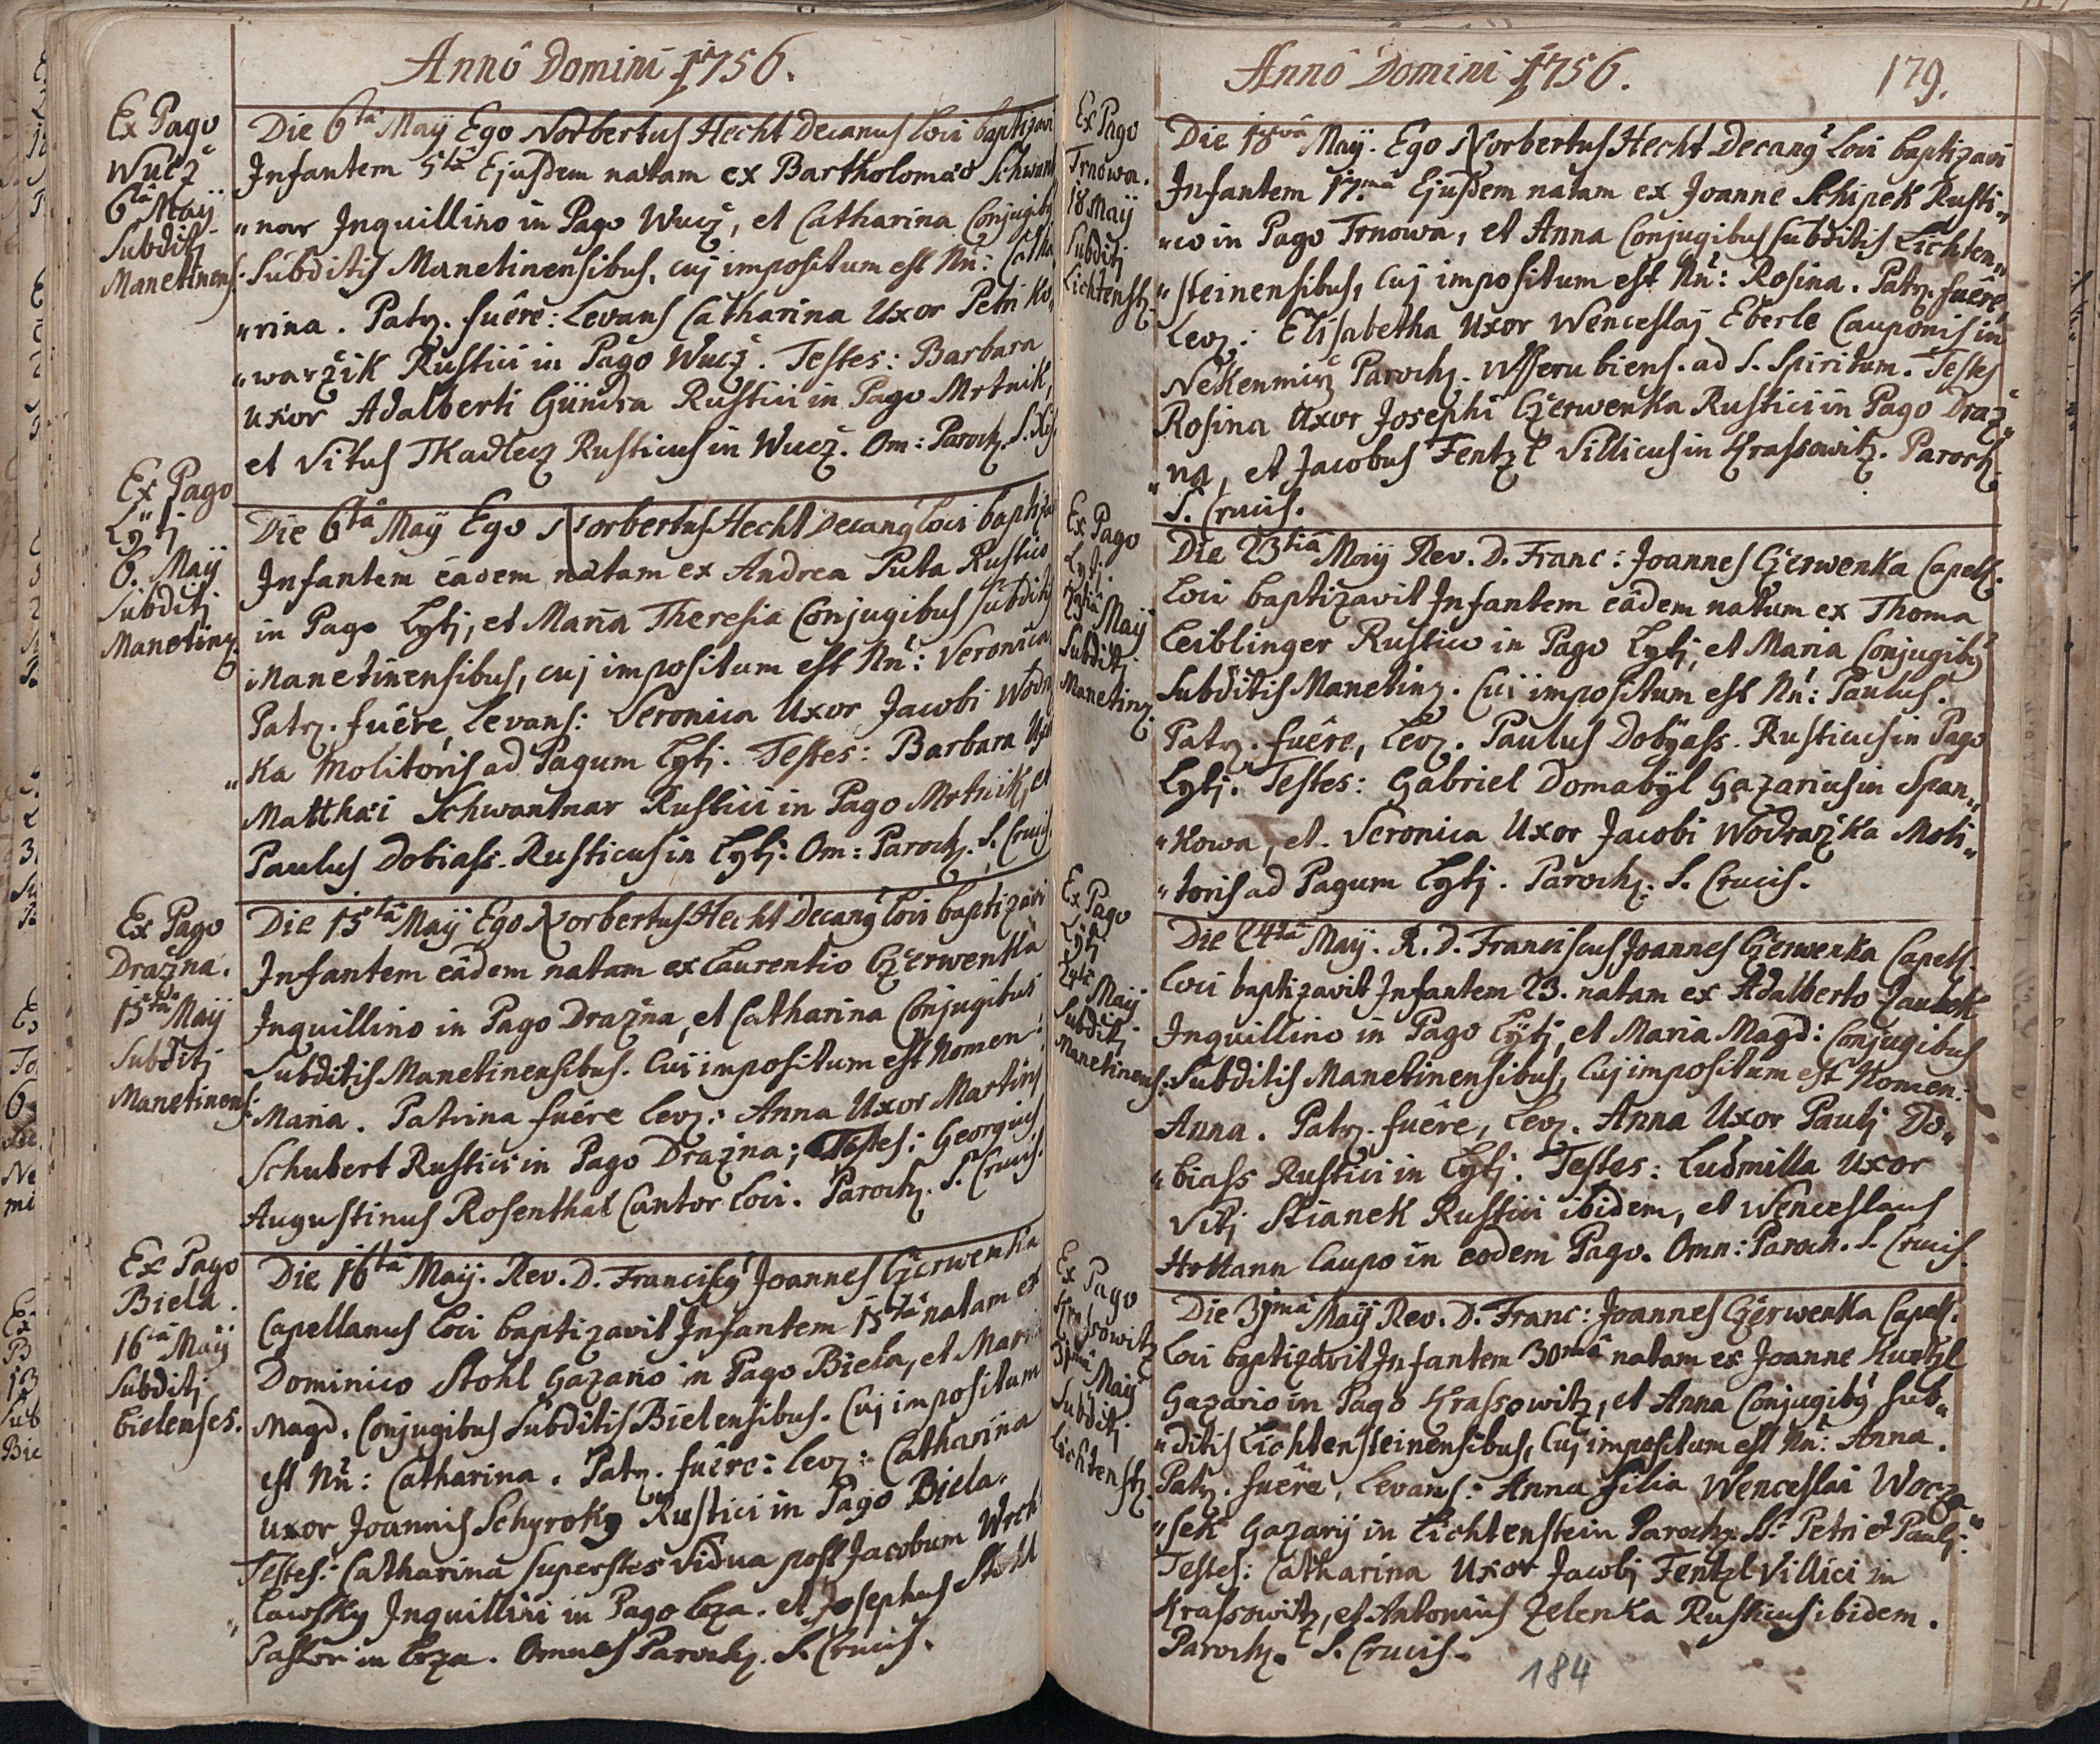 Annô Domini 1756.
Ex Pago
Wucž
6tâ Maÿ
Subditj
Manetinens:
Die 6tâ Maÿ Ego Norbertus Hecht Decanus Loci baptizavi
Infantem 5tâ Ejusdem natam ex Bartholomæo Schwant
"nar Inquillino in Pago Wucž, et Catharina Conjugibus
Subditis Manetinensibus, cuj impositum est Nn: Catha
"rina. Patr. fuêre: Levans Catharina Uxor Petri Ko,
"waržik Rustici in Pago Wucž. Testes: Barbara
Uxor Adalberti Gündra Rustici in Pago Mrtnik,
et Vitus Tkadlecz Rusticus in Wucž. Om: Paroch. S.
Ex Pago
Lÿtj
6. Maÿ
Subditj
Manetinz.
Die 6tâ Maÿ Ego Norbertus Hecht Decang Loci baptiza
Infantem eâdem natam ex Andrea Puta Rustico
in Pago Lytj, et Maria Theresia Conjugibus Subditis
Manetinensibus, cuj impositum est Nn: Veronica
Patr. fuêre, Levans: Veronica Uxor Jacobi Wodra
"ka Molitoris ad Pagum Lytj. Testes: Barbara Uxor
Matthæi Schwantnar Rustici in Pago Mrtnik, et
Paulus Dobiass. Rusticus in Lytj: Om: Paroch. S. Crucis
Ex Pago
Dražna.
15tâ Maÿ
Subditj
Manetinens:
Die 15tâ Maÿ Ego Norbertus Hecht Decang Loci baptizavi
Infantem eâdem natam ex Laurentio Czerwenka
Inquillino in Pago Dražna, et Catharina Conjugibus
Subditis Manetinensibus. Cui impositum est Nomen:
Maria. Patrina fuêre Lev: Anna Uxor Martini
Schubert Rustici in Pago Dražna; Testes: Georgius
Augustinus Rosenthal Cantor Loci. Paroch. S. Crucis.
Ex Pago
Biela.
16tâ Maÿ
Subditj
bielenses.
Die 16tâ Maÿ. Rev. D. Franciscg Joannes Czerwenka
Capellanus Loci baptizavit Infantem 15tâ natam ex
Dominico Stohl Gazario in Pago Biela, et Maria
Magd. Conjugibus Subditis Bielensibus. Cuj impositum
est Nn: Catharina. Patr. fuêre: Lev: Catharina
Uxor Joannis Schyroky Rustici in Pago Biela.
Testes: Catharina superstes Vidua post Jacobum
"lawsky Inquillini in Pago Loza. et Josephus Stohl
Pastor in Loza. Omnes Paroch. S. Crucis.
Annô Domini 1756.
179.
Ex Pago
Trnowa.
18 Maÿ
Subditj
Lichtenstz.
Die 18vâ Maÿ. Ego Norbertus Hecht Decang Loci baptizavi
Infantem 17.mâ Ejusdem natam ex Joanne Schipek Rusti"
"co in Pago Trnowa, et Anna Conjugibus Subditis Lichten"
"steinensibus, Cuj impositum est Nn: Rosina. Patr. fuêre,
Lev: Elisabetha Uxor Wenceslaj Eberle Cauponis in
Nekenmirž Paroch. Wsserubiens. ad S. Spiritum. Testes
Rosina Uxor Josephi Czerwenka Rustici in Pago Draž"
"na, et Jacobus Fentzl Villicus in Krassowitz. Paroch.
S. Crucis.
Ex Pago
Lytj.
23tiâ Maÿ
Subditj
Manetinz.
Die 23tiâ Maÿ Rev. D. Franc: Joannes Czerwenka Capell.
Loci baptizavit Infantem eâdem natum ex Thoma
Leiblinger Rustico in Pago Lytj, et Maria Conjugibg
Subditis Manetinz. Cui impositum est Nn: Paulus.
Patr. fuêre, Lev. Paulus Dobÿass. Rusticus in Pago
Lytj. Testes: Gabriel Domabÿl Gazarius in Span"
"kowa, et. Veronica Uxor Jacobi Wodražka Moli"
"toris ad Pagum Lytj. Paroch. S. Crucis.
Ex Pago
Lÿtj
24tâ Maÿ
Subditj
Manetinens:
Die 24tâ Maÿ. R. D. Franciscus Joannes Czerwenka Capell.
Loci baptizavit Infantem 23. natam ex Adalberto
Inquillino in Pago Lÿtj, et Maria Magd: Conjugibus
Subditis Manetinensibus, Cuj impositum est Nomen:
Anna. Patr. fuêre, Lev. Anna Uxor Paulj Do"
"biass Rustici in Lytj. Testes: Ludmilla Uxor
Vitj Stianek Rustici ibidem, et Wenceslaus
Caupo in eodem Pago. Omn: Paroch. S. Crucis.
Ex Pago
Krassowitz
31mâ Maÿ
Subditj
Lichtenstz.
Die 31mâ Maÿ Rev. D. Franc: Joannes Czerwenka Capel.
Loci baptizavit Infantem 30mâ natam ex Joanne Kuntzl
Gazario in Pago Krassowitz, et Anna Conjugibg Sub"
"ditis Lichtensteinensibus, Cuj impositum est Nn: Anna.
Patr. fuêre, Levans: Anna Filia Wenceslai Wocza"
"sek Gazarÿ in Lichtenstein Paroch. SS. Petri et Paulj:
Testes: Catharina Uxor Jacobj Fentzl Villici in
Krassowitz, et Antonius Zelenka Rusticus ibidem.
Paroch. S. Crucis.
184